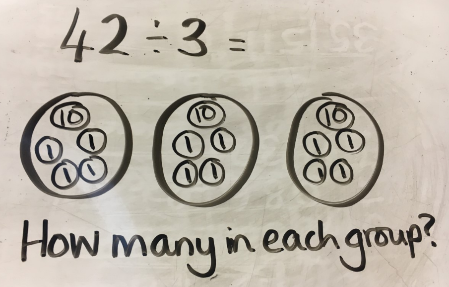 42 ÷ 3 =
10 10 10
1 1 1 1 1 1
1 1 1 1 1 1
How many in each group?